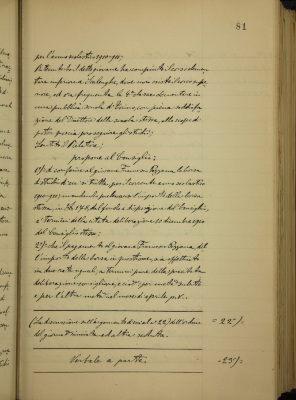 81
per l'anno scolastico 1910-911;
Ritenuto che il detto giovane ha compiute le scuole elementari
inferiori a Scalenghe, dove non esiste la scuola superiore,
ed ora frequenta la 4ª classe elementare in
una pubblica scuola di Torino, con piena soddisfazione
del Direttore della scuola stessa,
poter poscia proseguire gli studi;
Sentito il Relatore;
propone al Consiglio:
1º) di conferire al giovane Francesco Pozzana la borsa
di studio di cui si tratta, per l'anno scolastico
1910-911, mandando prelevare l'importo della borsa
stessa in L. dal fondo a disposizione del Consiglio,
a termini della citata deliberazione 10 dicembre 1910
del Consiglio stesso;
2º) che il pagamento al giovane Francesco Pozzana dell'importo
della borsa in questione, sia effettuato
in due rate uguali, a termini pure della precitata
deliberazione consigliare, e cioè: per metà subito
e per l'altra metà nel mese di aprile p.v.
(La discussione sull'argomento di cui al nº 22) dell'ordine = 22º/=
del giorno è rinviata ad altra seduta.
Verbale a parte. = 23º/=